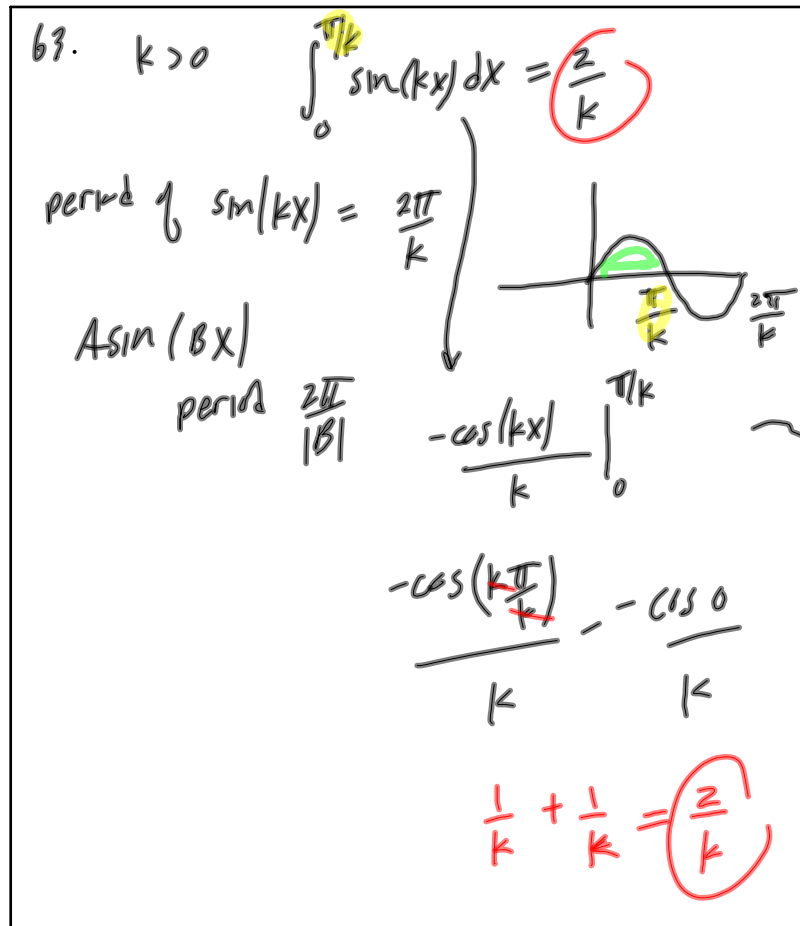 63. k > 0 ∫₀^{π/k} sin(kx) dx = 2/k
period of sin(kx) = 2π/k
π/k 2π/k
A sin(Bx)
period 2π/|B|
-cos(kx)/k |₀^{π/k}
-cos(kπ/k)/k - -cos 0/k
1/k + 1/k = 2/k